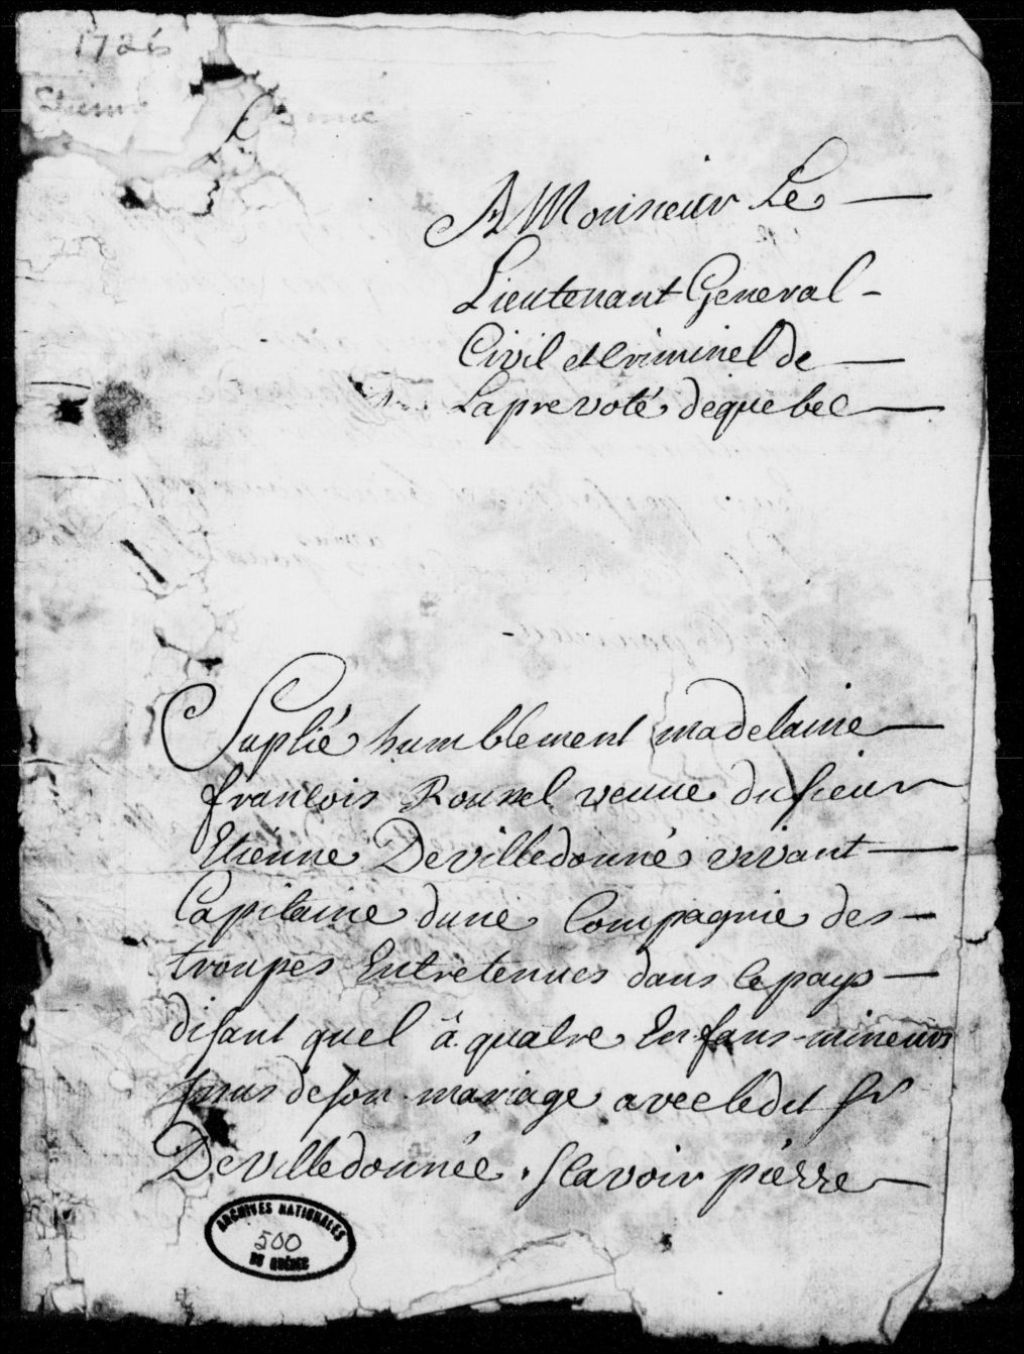 1726
A Monsieur Le
Lieutenant General
Civil et Criminel de
Laprevoté dequebec
Suplié humblement madelaine
francois Roussel veuue du sieur
Etienne Devilledonné vivant
Capitaine dune Compagnie des
troupes Entretenues dans le pays
disant quel â quatre Enfans mineurs
issus de son mariage avec ledit Sr
Devilledonnée, scavoir piérre
ARCHIVES NATIONALES
500
DU QUÉBEC